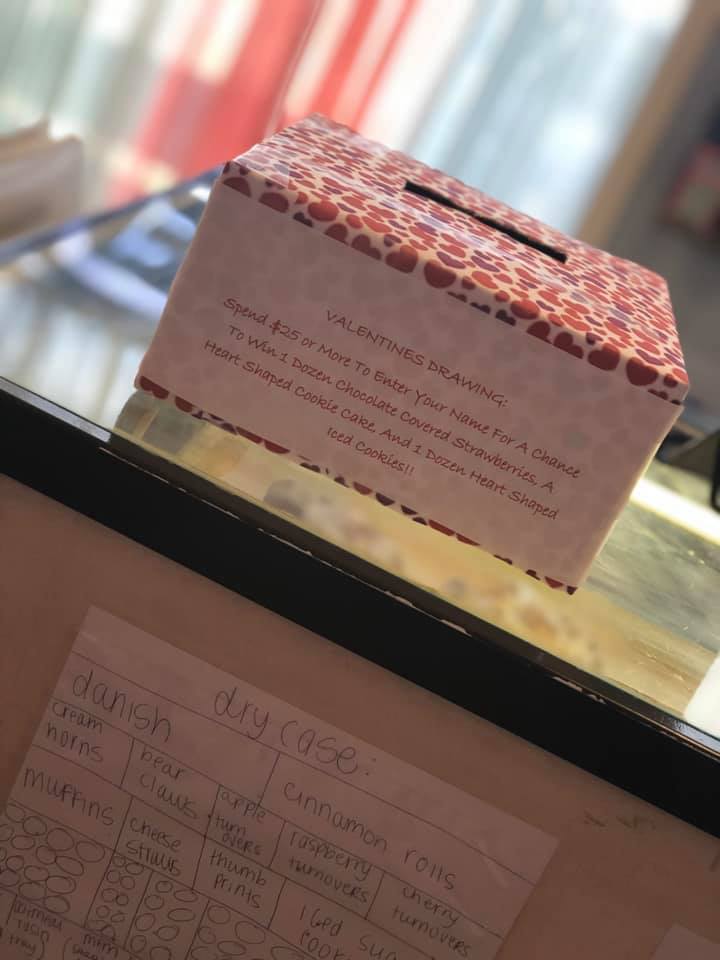 VALENTINES DRAWING:
Spend $25 or More To Enter Your Name For A Chance
To Win 1 Dozen Chocolate Covered Strawberries, A
Heart Shaped Cookie Cake, And 1 Dozen Heart Shaped
Iced Cookies!!
dry case:
danish
cinnamon rolls
cream
horns
bear
claws
apple
turn
overs
raspberry
turnovers
cherry
turnovers
muffins
cheese
straws
thumb
prints
Iced